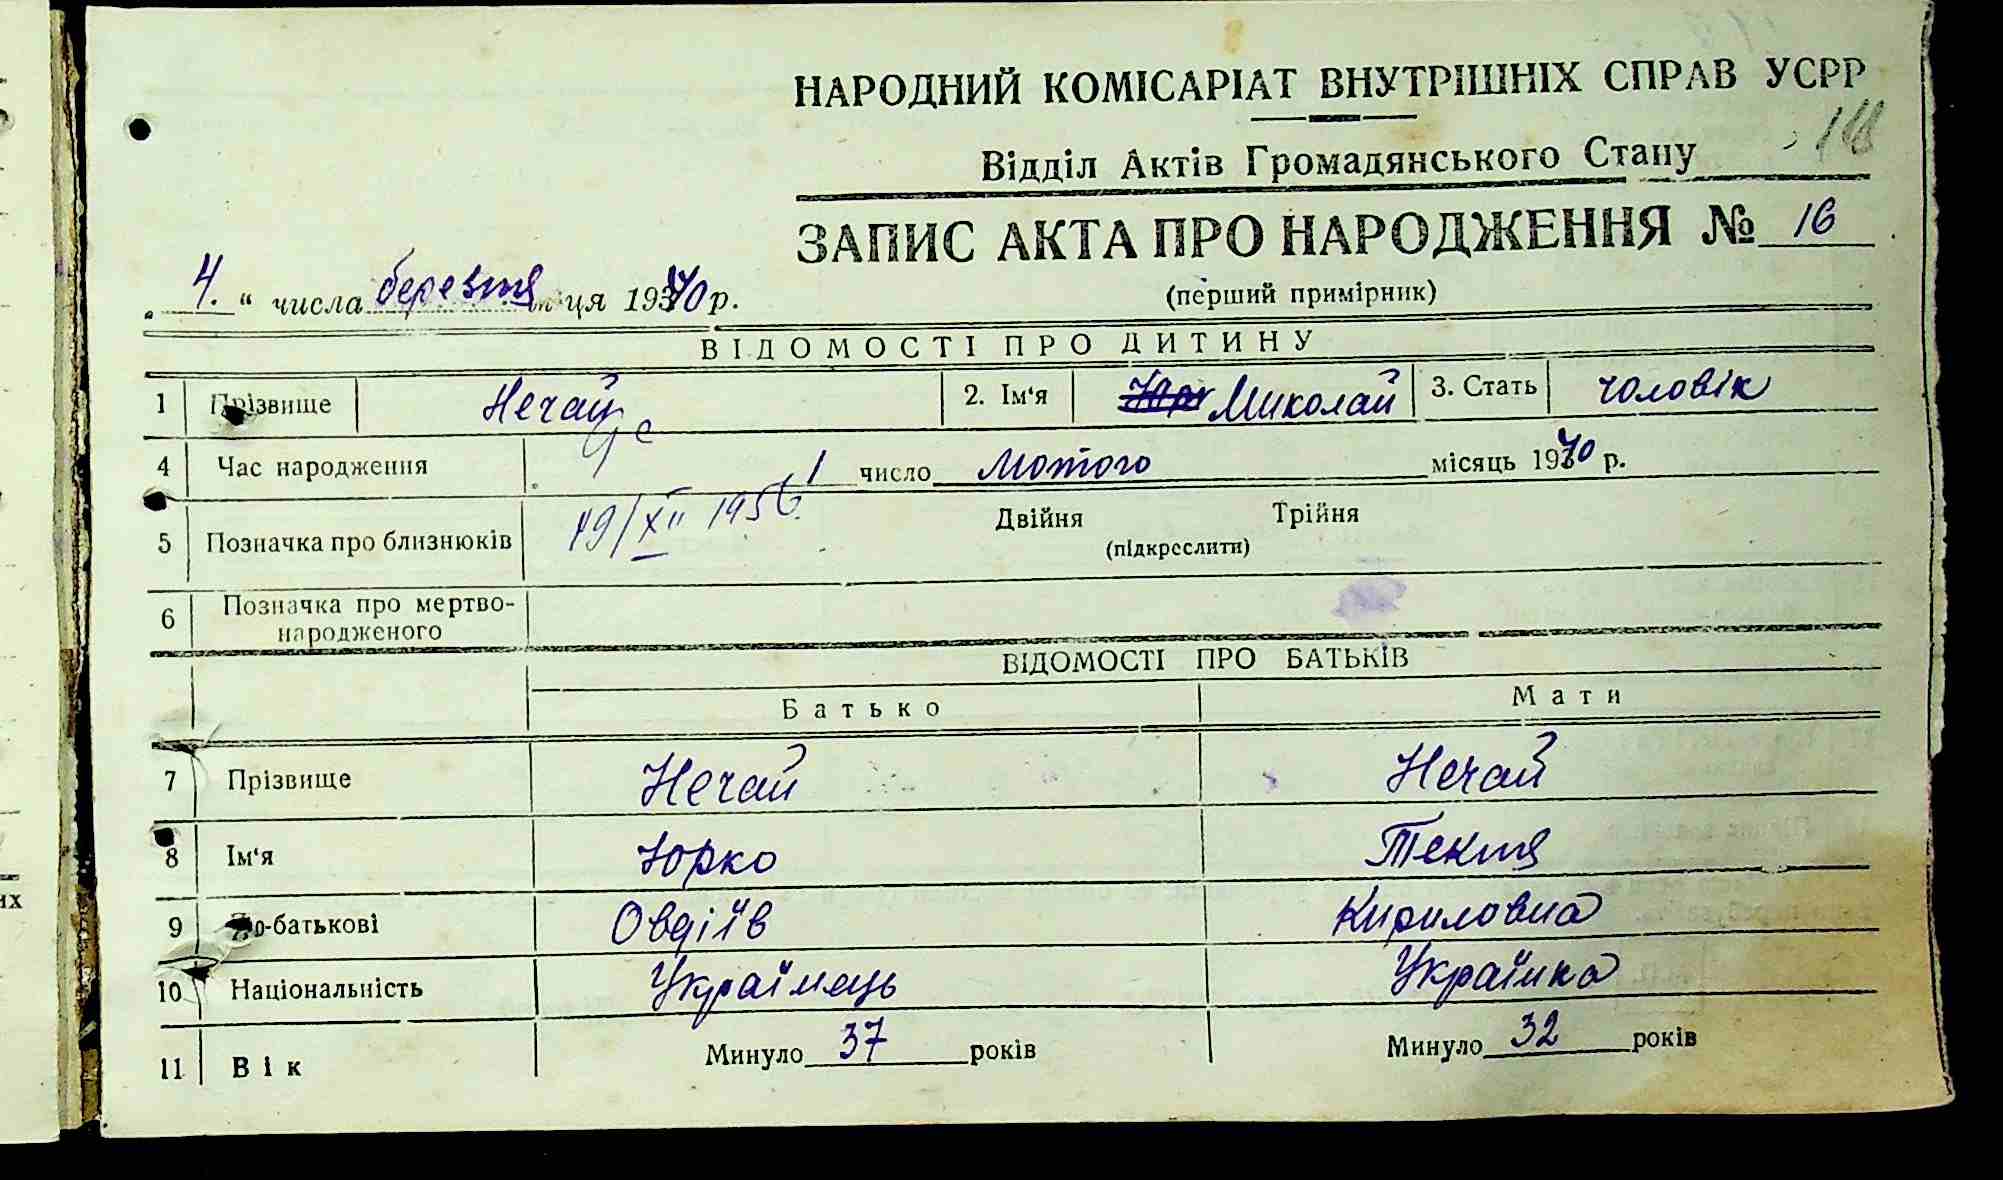 НАРОДНИЙ КОМІСАРІАТ ВНУТРІШНІХ СПРАВ УСРР
Відділ Актів Громадянського Стану
ЗАПИС АКТА ПРО НАРОДЖЕННЯ № 16
(перший примірник)
„ 4. “ числа березня м-ця 1940 р.
ВІДОМОСТІ ПРО ДИТИНУ
1 Прізвище Нечай 2. Ім‘я Миколай 3. Стать чоловік
4 Час народження 1 число лютого місяць 1940 р.
19/XII 1956.
5 Позначка про близнюків Двійня Трійня
(підкреслити)
6 Позначка про мертво-
народженого
ВІДОМОСТІ ПРО БАТЬКІВ
Батько Мати
7 Прізвище Нечай Нечай
8 Ім‘я Юрко Текля
9 По-батькові Овдіїв Кириловна
10 Національність Українець Українка
11 Вік Минуло 37 років Минуло 32 років
их